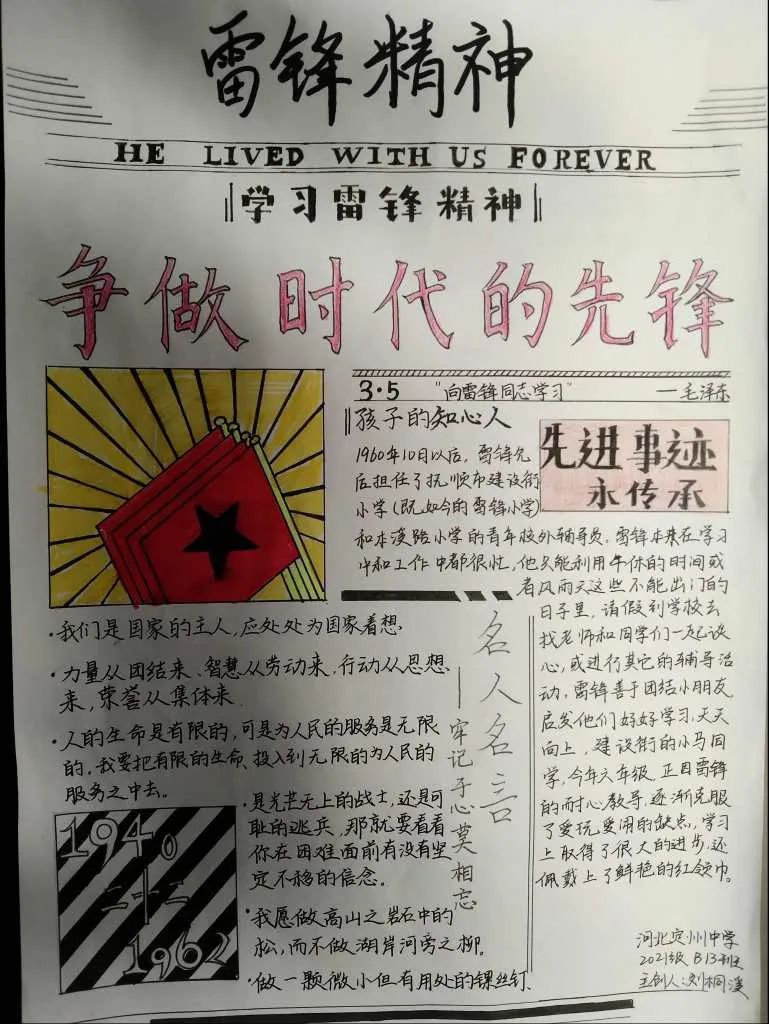 雷锋精神
HE LIVED WITH US FOREVER
学习雷锋精神
争做时代的先锋
3·5 "向雷锋同志学习" —毛泽东
孩子的知心人
先进事迹
永传承
1960年10日以后，雷锋先
后担任了抚顺市建设街
小学(既如今的雷锋小学)
和本溪路小学的青年校外辅导员。雷锋本来在学习
中和工作中都很忙，他只能利用午休的时间或
者风雨天这些不能出门的
日子里，请假到学校去
找老师和同学们一起谈
心，或进行其它的辅导活
动，雷锋善于团结小朋友
启发他们好好学习，天天
向上，建设街的小马同
学，今年六年级，正因雷锋
的耐心教导，逐渐克服
了爱玩爱闹的缺点，学习
上取得了很大的进步，还
佩戴上了鲜艳的红领巾。
名人名言
—牢记于心莫相忘
·我们是国家的主人，应处处为国家着想.
·力量从团结来、智慧从劳动来，行动从思想
来，荣誉从集体来.
·人的生命是有限的，可是为人民的服务是无限
的，我要把有限的生命、投入到无限的为人民的
服务之中去。
·是光芒无上的战士，还是可
耻的逃兵，那就要看看
你在困难面前有没有坚
定不移的信念。
·我愿做高山之岩石中的
松，而不做湖岸河旁之柳。
·做一颗微小但有用处的镙丝钉.
1940
1962
河北定州中学
2021级 B13班
主创人：刘桐溪